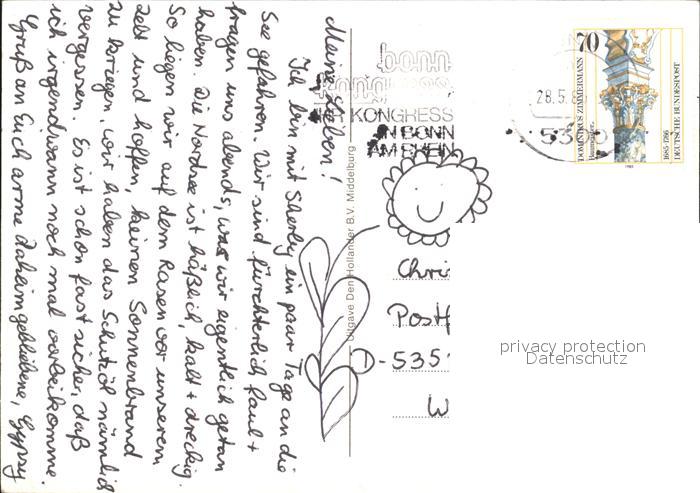 Meine Lieben!
Ich bin mit Shirley ein paar Tage an die
See gefahren. Wir sind fürchterlich faul +
fragen uns abends, was wir eigentlich getan
haben. Die Nordsee ist häßlich, kalt + dreckig.
So liegen wir auf dem Rasen vor unserem
Zelt und hoffen, keinen Sonnenbrand
zu kriegen, wir haben das Schutzöl nämlich
vergessen. Es ist schon fast sicher, daß
ich irgendwann noch mal vorbeikomme.
Gruß an Euch arme Daheimgebliebene, Gypsy
Uitgave Den Hollander B.V. Middelburg
bonn
KONGRESS
IN BONN
AM RHEIN
28.5.8
70
DOMINIKUS ZIMMERMANN
Baumeister
1685-1766
DEUTSCHE BUNDESPOST
1985
Chri
Post
D-535
W
privacy protection
Datenschutz